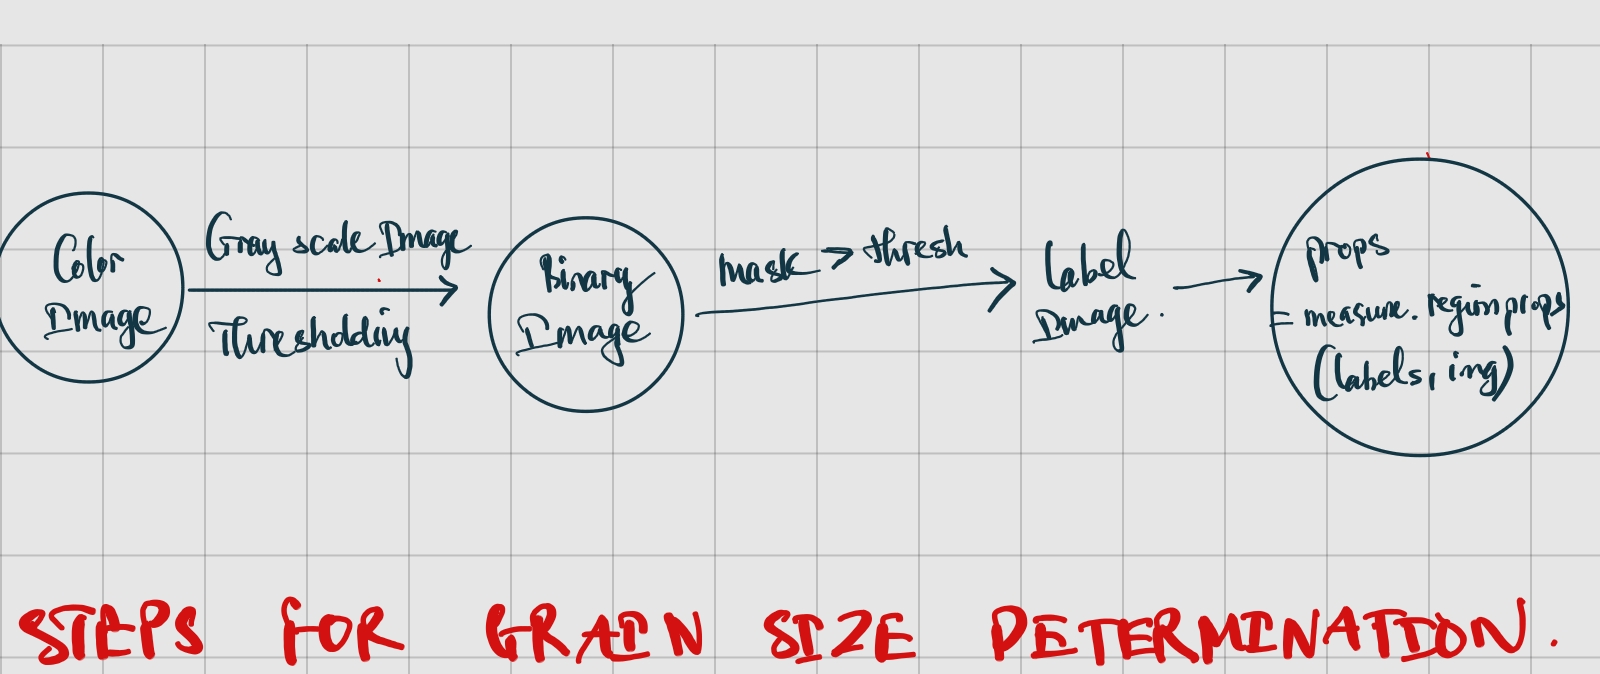 Color
Image
Gray scale Image
Thresholding
Binary
Image
mask > thresh
Label
Image.
props
= measure.regionprops
(labels, img)
STEPS FOR GRAIN SIZE DETERMINATION.